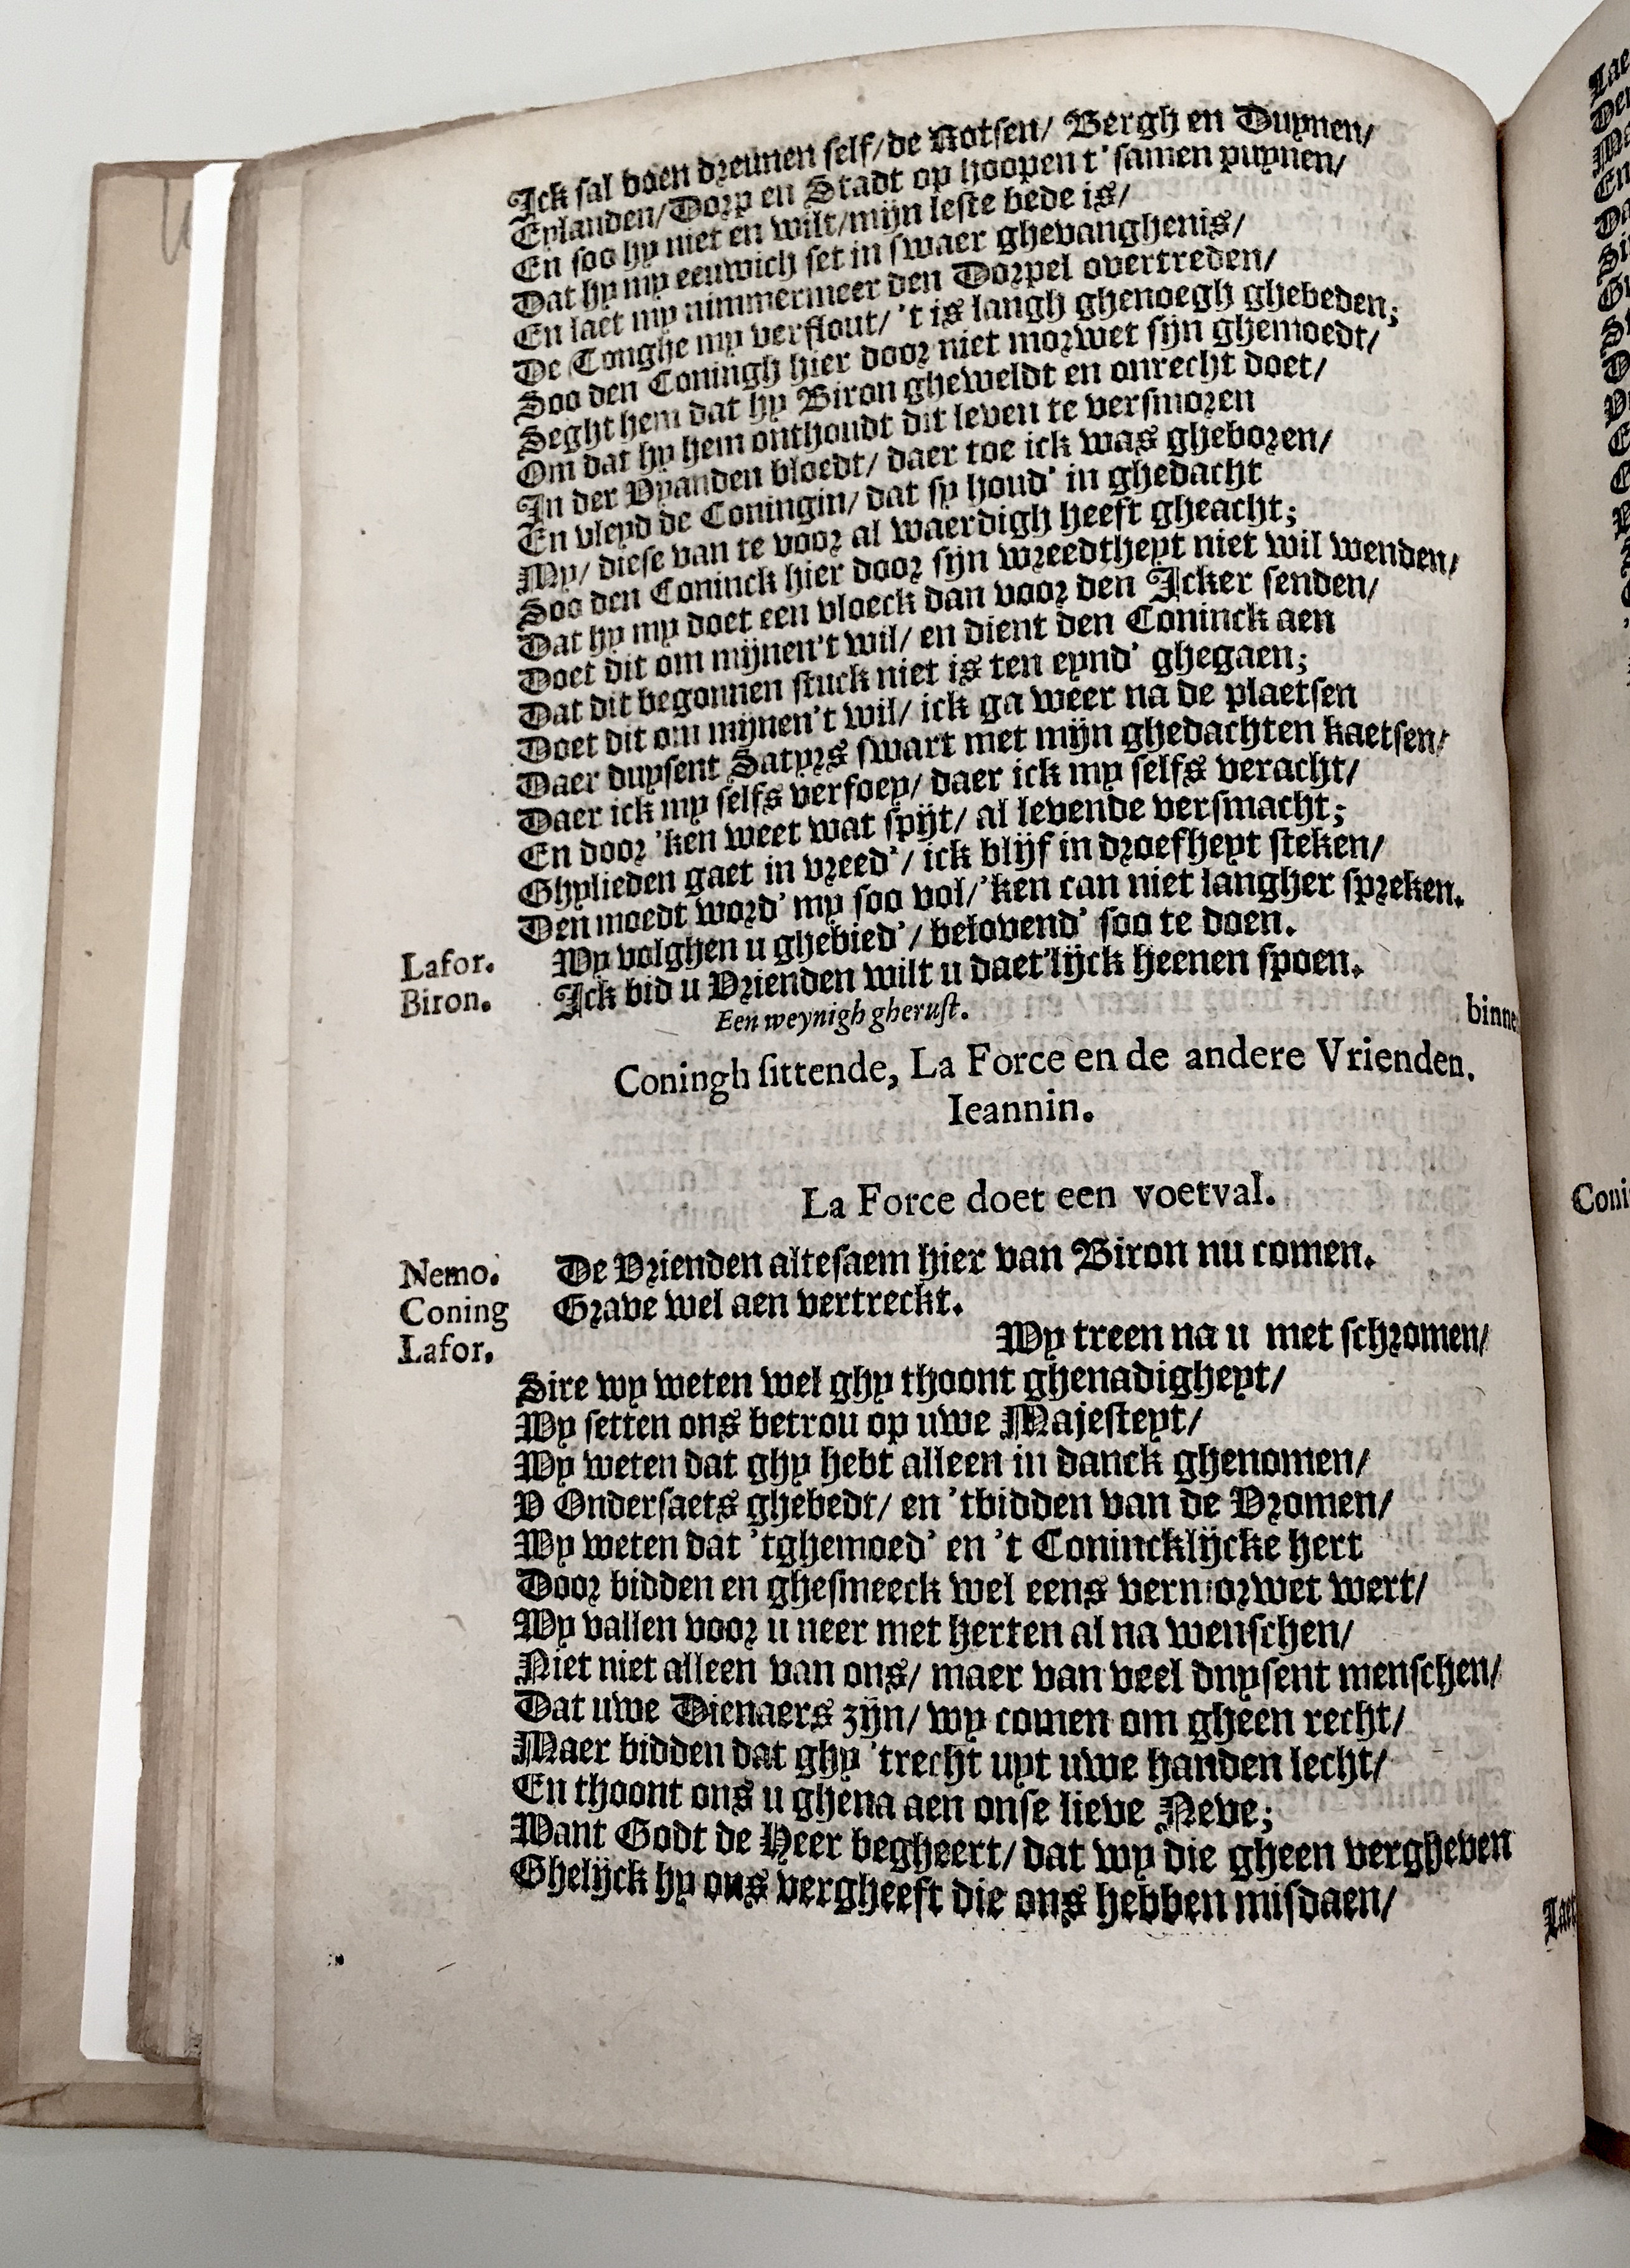 Ick sal doen dreunen self/ de Rotsen/ Bergh en Duynen/
Eylanden/ Dorp en Stadt op hoopen t'samen puynen/
En soo hy niet en wilt/ mijn leste bede is/
Dat hy my eeuwich set in swaer ghevanghenis/
En laet my nimmermeer den Dorpel overtreden/
De Tonghe my verflout/ 't is langh ghenoegh ghebeden;
Soo den Coningh hier door niet morwet sijn ghemoedt/
Seght hem dat hy Biron gheweldt en onrecht doet/
Om dat hy hem onthoudt dit leven te versmoren
In der Vyanden bloedt/ daer toe ick was gheboren/
En vleyd de Coningin/ dat sy houd' in ghedacht
My/ diese van te voor al waerdigh heeft gheacht;
Soo den Coninck hier door sijn wreedtheyt niet wil wenden/
Dat hy my doet een vloeck dan voor den Icker senden/
Doet dit om mijnen't wil/ en dient den Coninck aen
Dat dit begonnen stuck niet is ten eynd' ghegaen;
Doet dit om mijnen't wil/ ick ga weer na de plaetsen
Daer duysent Satyrs swart met mijn ghedachten kaetsen/
Daer ick my selfs verfoey/ daer ick my selfs veracht/
En door 'ken weet wat spijt/ al levende versmacht;
Ghylieden gaet in vreed'/ ick blijf in droefheyt steken/
Den moedt word' my soo vol/ 'ken can niet langher spreken.
Lafor. Wy volghen u ghebied'/ belovend' soo te doen.
Biron. Ick bid u Vrienden wilt u daet'lijck heenen spoen.
Een weynigh gherust. binne
Coningh sittende, La Force en de andere Vrienden.
Ieannin.
La Force doet een voetval.
Nemo. De Vrienden altesaem hier van Biron nu comen.
Coning Grave wel aen vertreckt.
Lafor. Wy treen na u met schromen/
Sire wy weten wel ghy thoont ghenadigheyt/
Wy setten ons betrou op uwe Majesteyt/
Wy weten dat ghy hebt alleen in danck ghenomen/
V Ondersaets ghebedt/ en 'tbidden van de Vromen/
Wy weten dat 'tghemoed' en 't Conincklijcke hert
Door bidden en ghesmeeck wel eens vermorwet wert/
Wy vallen voor u neer met herten al na wenschen/
Niet niet alleen van ons/ maer van veel dnysent menschen/
Dat uwe Dienaers zijn/ wy comen om gheen recht/
Maer bidden dat ghy 'trecht uyt uwe handen lecht/
En thoont ons u ghena aen onse lieve Neve;
Want Godt de Heer begheert/ dat wy die gheen vergheven
Ghelijck hy ons vergheeft die ons hebben misdaen/